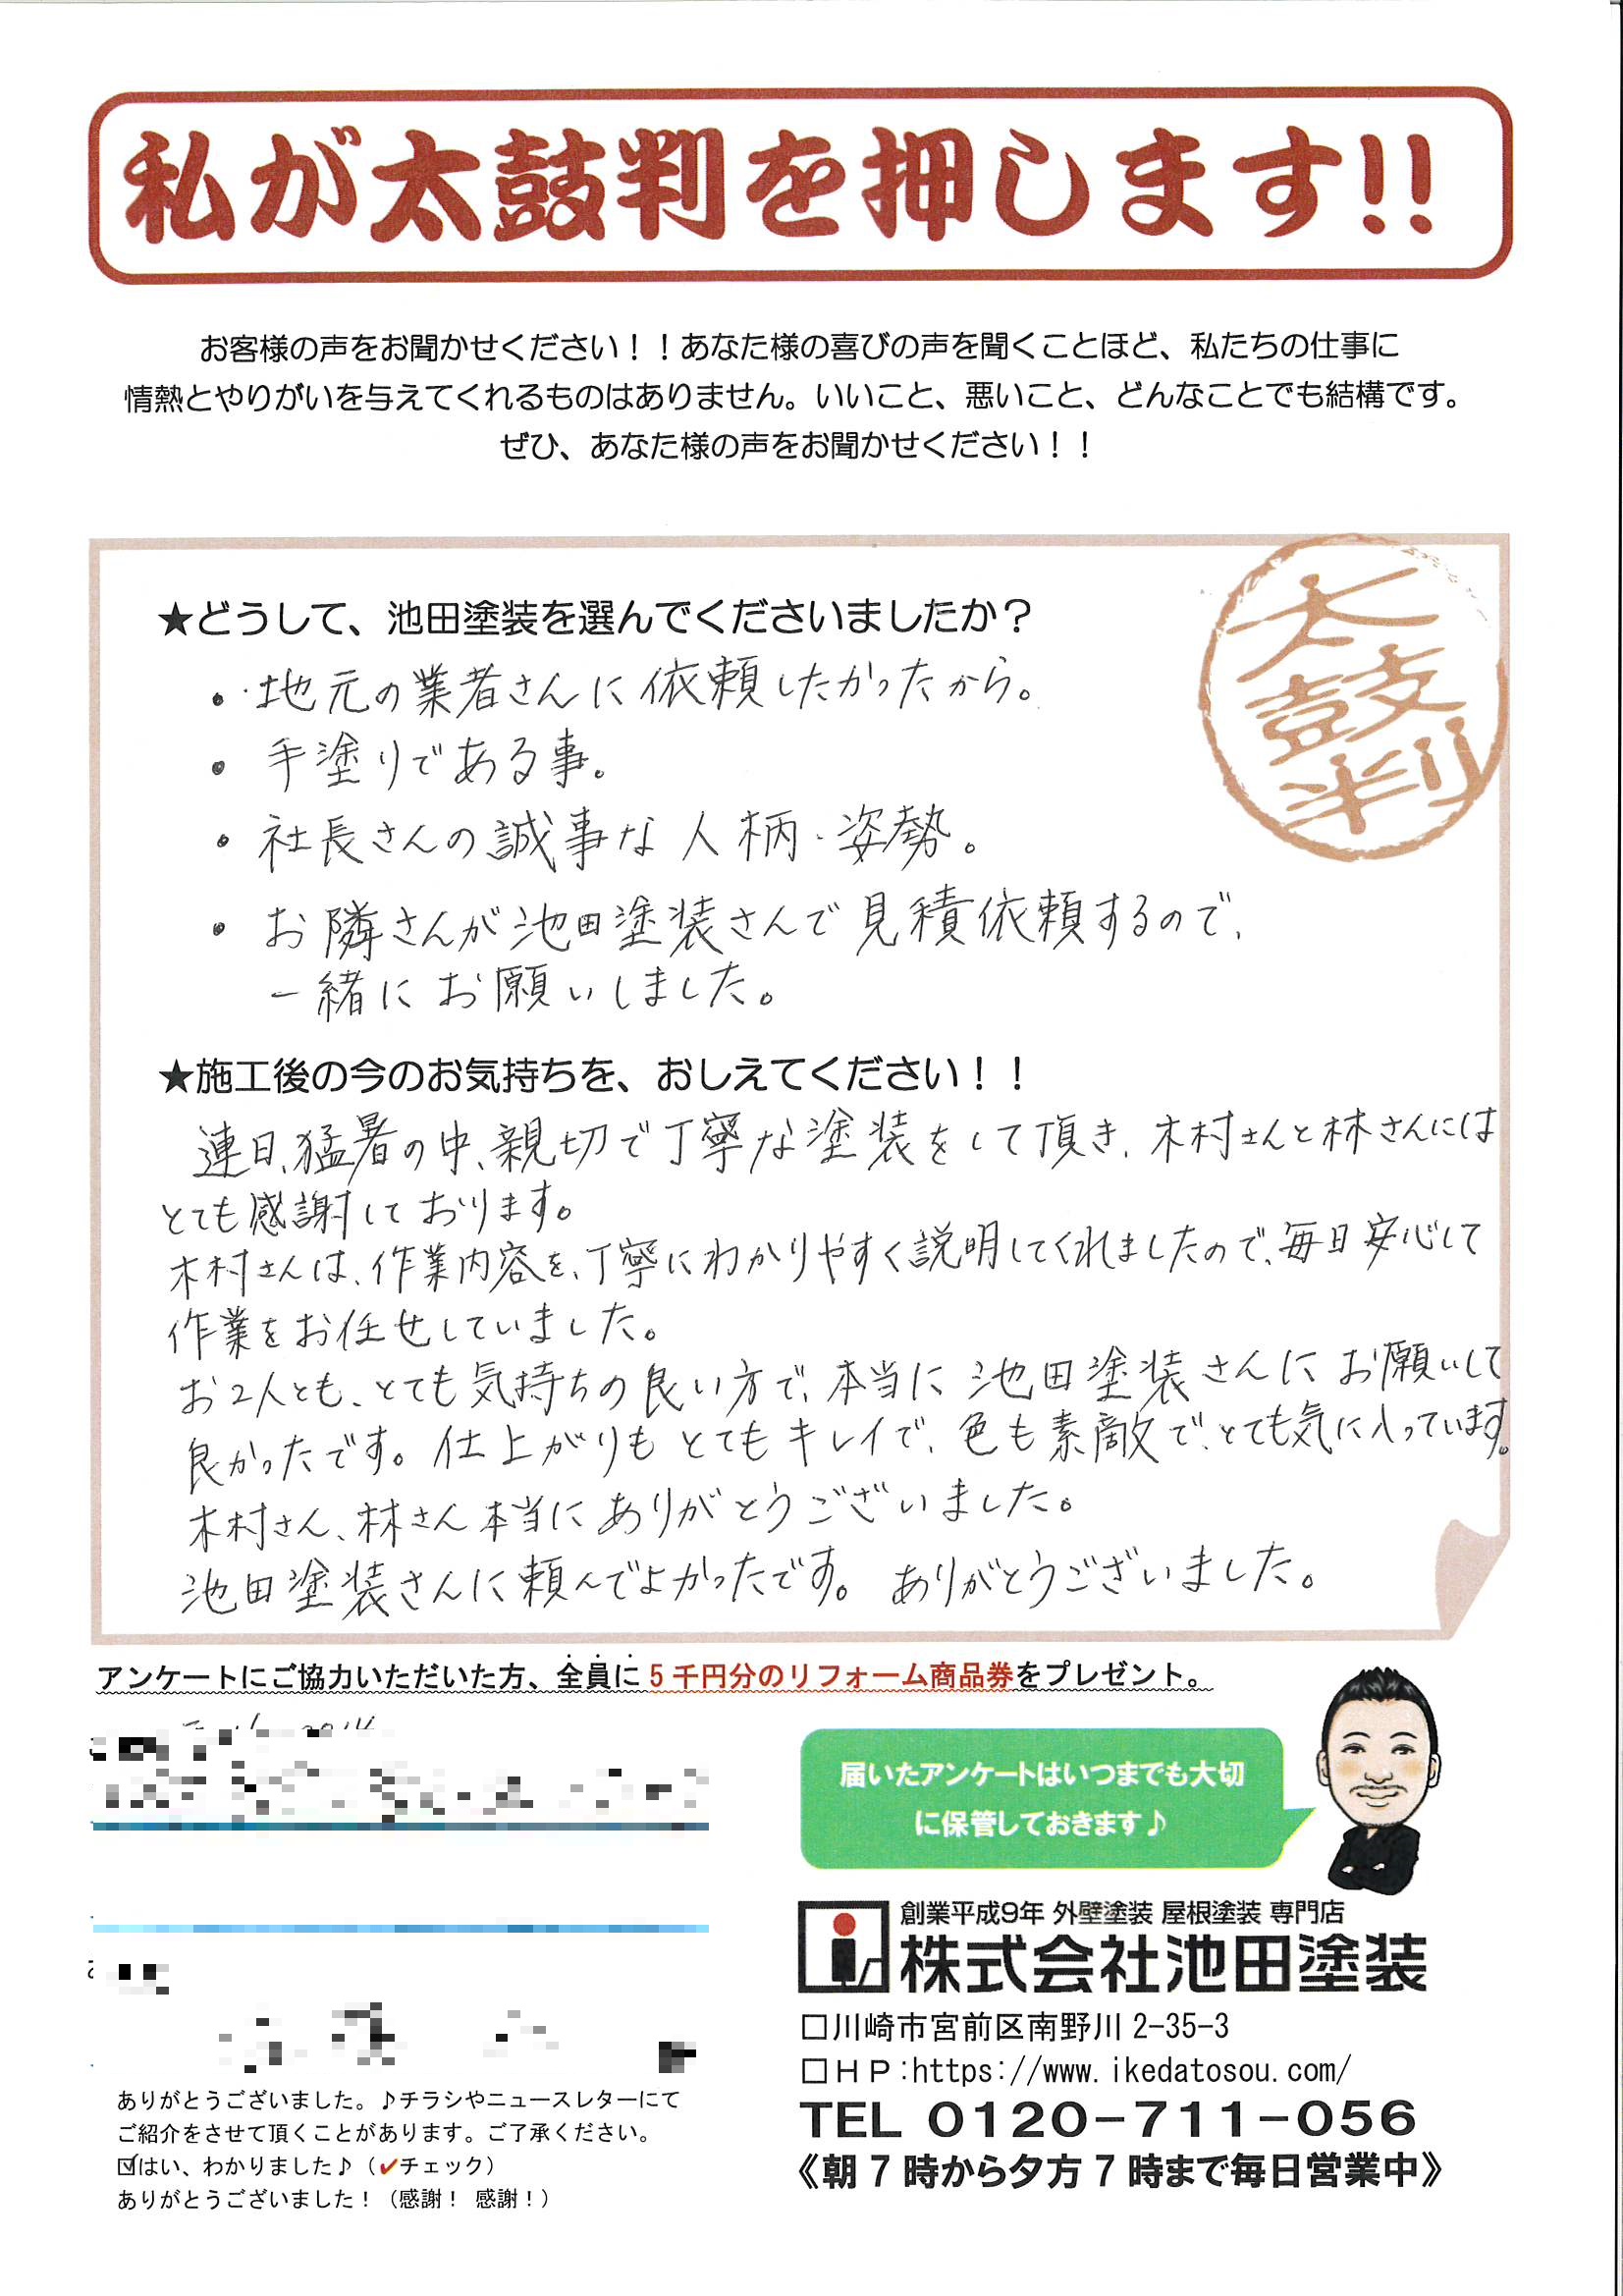 私が太鼓判を押します!!
お客様の声をお聞かせください！！あなた様の喜びの声を聞くことほど、私たちの仕事に
情熱とやりがいを与えてくれるものはありません。いいこと、悪いこと、どんなことでも結構です。
ぜひ、あなた様の声をお聞かせください！！
太鼓判
★どうして、池田塗装を選んでくださいましたか？
・地元の業者さんに依頼したかったから。
・手塗りである事。
・社長さんの誠事な人柄・姿勢。
・お隣さんが池田塗装さんで見積依頼するので、
一緒にお願いしました。
★施工後の今のお気持ちを、おしえてください！！
連日、猛暑の中、親切で丁寧な塗装をして頂き、木村さんと林さんには
とても感謝しております。
木村さんは、作業内容を、丁寧にわかりやすく説明してくれましたので、毎日安心して
作業をお任せしていました。
お2人とも、とても気持ちの良い方で、本当に池田塗装さんにお願いして
良かったです。仕上がりもとてもキレイで、色も素敵で、とても気に入っています。
木村さん、林さん本当にありがとうございました。
池田塗装さんに頼んでよかったです。ありがとうございました。
アンケートにご協力いただいた方、全員に5千円分のリフォーム商品券をプレゼント。
届いたアンケートはいつまでも大切
に保管しておきます♪
創業平成9年 外壁塗装 屋根塗装 専門店
株式会社池田塗装
□川崎市宮前区南野川2-35-3
□ＨＰ:https://www.ikedatosou.com/
TEL 0120-711-056
《朝7時から夕方7時まで毎日営業中》
ありがとうございました。♪チラシやニュースレターにて
ご紹介をさせて頂くことがあります。ご了承ください。
☑はい、わかりました♪（✔チェック）
ありがとうございました！（感謝！ 感謝！）